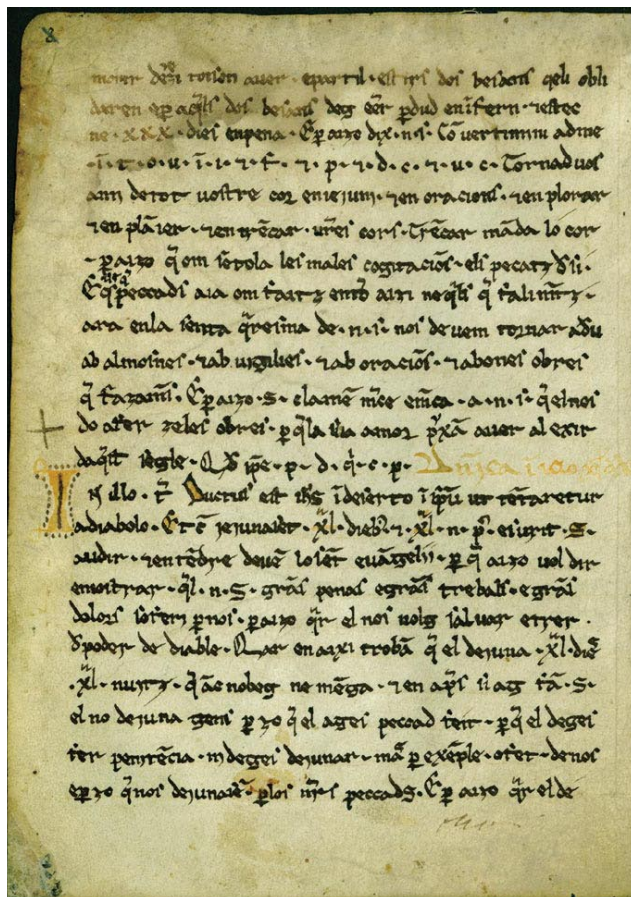 moner dez̄i torsen auer · epartil · estirs dos besanɫ qeli obli
daren eꝑ aq̄ls dos besanɫ deg eēr ꝑdud en īfern · ⁊estec
ne · XXX · dies enpena · Eꝑ aizo dix · n · s · Cōuertimini adme
· ī · t · o · u · ī · i · ⁊ · f · ⁊ · p · ⁊ · d · c · ⁊ · u · c · Tornaduos
am detot uostre cor en ieiuni · ⁊en oracions · ⁊en plorar
⁊en plāier · ⁊en trēcar · ur̄es cors · Trēcar māda lo cor
· ꝑ aizo q̄ om sētola les males cogitaciōs · els pecatz
peccads aia om faitz entō aizi neq̄ls q̄ fali
ara enla senta q̄resma de · n · s · nos deuem tornar adeu
ab almosnes · ⁊ab uigilies · ⁊ab oraciōs · ⁊abones obres
q̄ fazam · Eꝑ aizo · S · clamē mc̄e · a · n · s · q̄ elnos
do afer zeles obres · ꝑ q̄ la sua amor auer al exir
daq̄st segle · Q̄d ip̄e · p · d · q̄ · c · p ·
In illo · t̄ Ductus est ih̄s ī deserto ī sp̄u ut tētaretur
adiabolo · Et c̄ ieiunasset · xl · dieb; ⁊ · xl · n · p̄ · esurit · S ·
audir · ⁊entēdre deuē lo sēt euāgeli · ꝑ q̄ aizo uol dir
emostrar · q̄l · n · S · grās penas egrās trebals · egrās
dolors soferi ꝑ nos · ꝑ aizo q̄r el nos uolg saluar etrer ·
de poder de diable · Quar en aixi trobā q̄ el deiuna · xl · dies
· xl · nuitz · q̄ āc nobeg ne mēga · ⁊en ap̄s si ag fā · S ·
el no deiuna gens ꝑ zo q̄ el ages peccad feit · ꝑ q̄ el deges
fer penitēcia · ni deges deiunar · mas ꝑ exēple · ofet · denos
eꝑ zo q̄ nos deiunasē · ꝑ los peccads · Eꝑ aizo q̄r el de